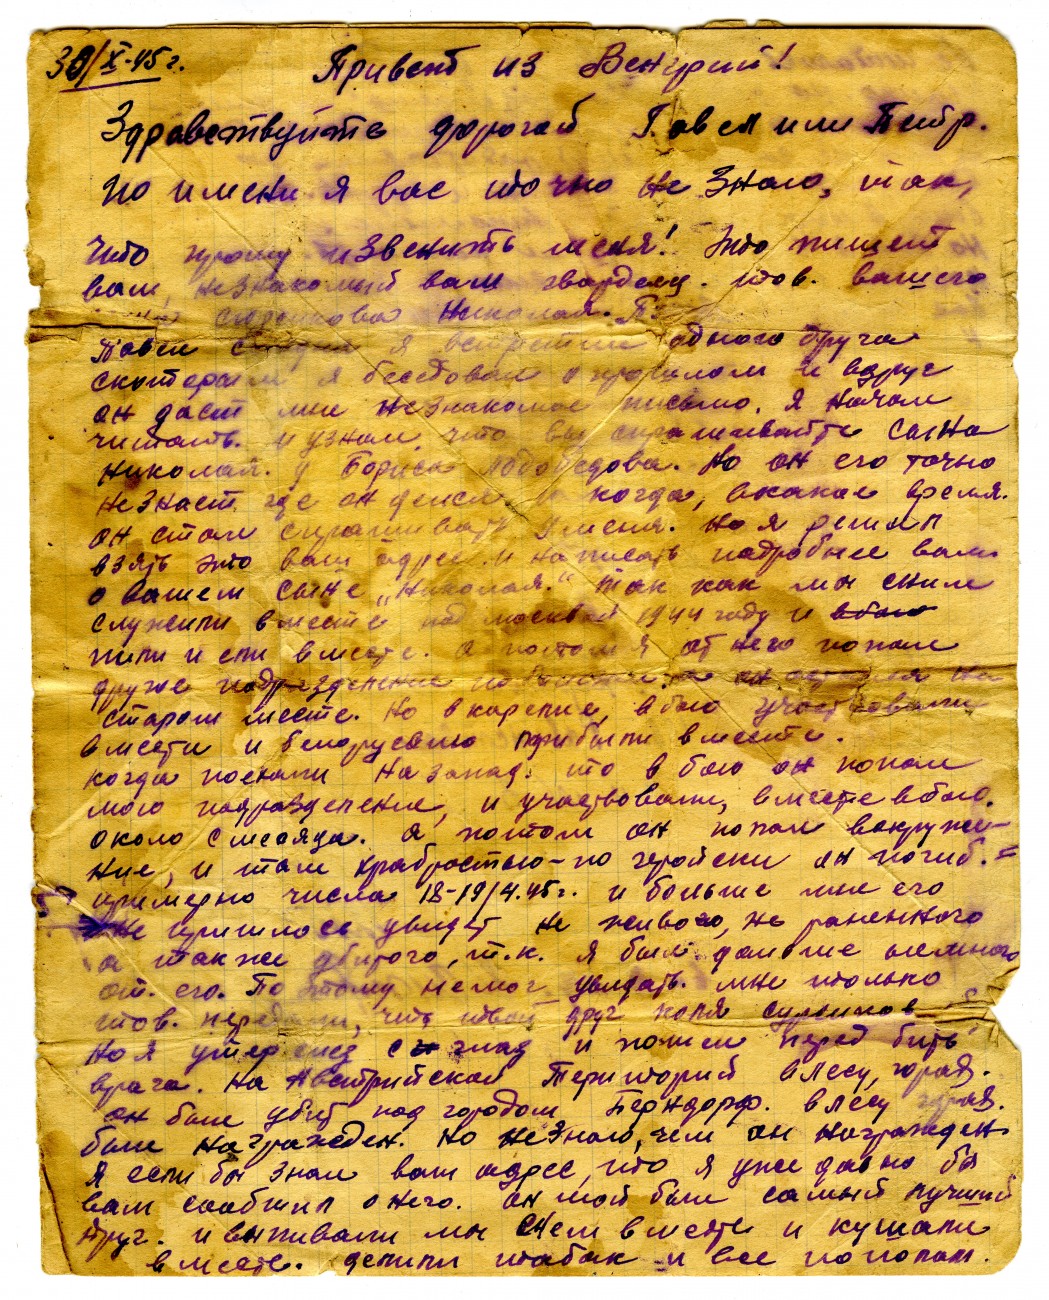 30/X-45 г. Привет из Венгрий!
Здравствуйте дорогой Павел или Петр.
по имени я вас точно не знаю, так,
что прошу извенить меня! Это пишет
вам, незнакомый вам гвардеец. тов. вашего
Николая. П.
Павел я встретил одного друга
с которым я беседовал о прошлом и вдруг
он дает мне незнакомое письмо. Я начал
читать. и узнал, что вы спрашивайте сына
Николай. у Бориса Лободедова. Но он его точно
незнает где он делся и когда, в какое время.
он стал спрашивать у меня. Но я решил
взять это ваш адрес. и написать подробнее вам
о вашем сыне „Николая." так как мы с ним
служили в месте под москвой 1944 году и в бою
пили и ели в месте. а потом я от него попал
другое подразделение а он остался на
старом месте. Но в карелие, в бою участвовали
в месте и белоруссию прибыли в месте.
когда поехали на запад. то в бою он попал
мою подразделение, и участвовали, в месте в бою.
около с месяца. А потом он попал в окруже-
ние, и там храбростью-по геройски он погиб. =
примерно числа 18-19/4.45 г. и больше мне его
не пришлось увидет не живого, не раненного
а также убитого, т.к. я был дальше немного
от. его. По этому не мог увидать. мне только
тов. передали, что твой друг коля
Но я утер след с глаз и пошел перед бить
врага. на Австрийской територий в лесу, горах.
он был убит под городом Берндорф. в лесу горах.
был награжден. но незнаю, чем он награжден
Я если бы знал ваш адрес, то я уже давно бы
вам сообщил о него. он мой был самый лучший
друг. и выпивали мы с нем в месте и кушали
в месте. делили табак и все пополам.